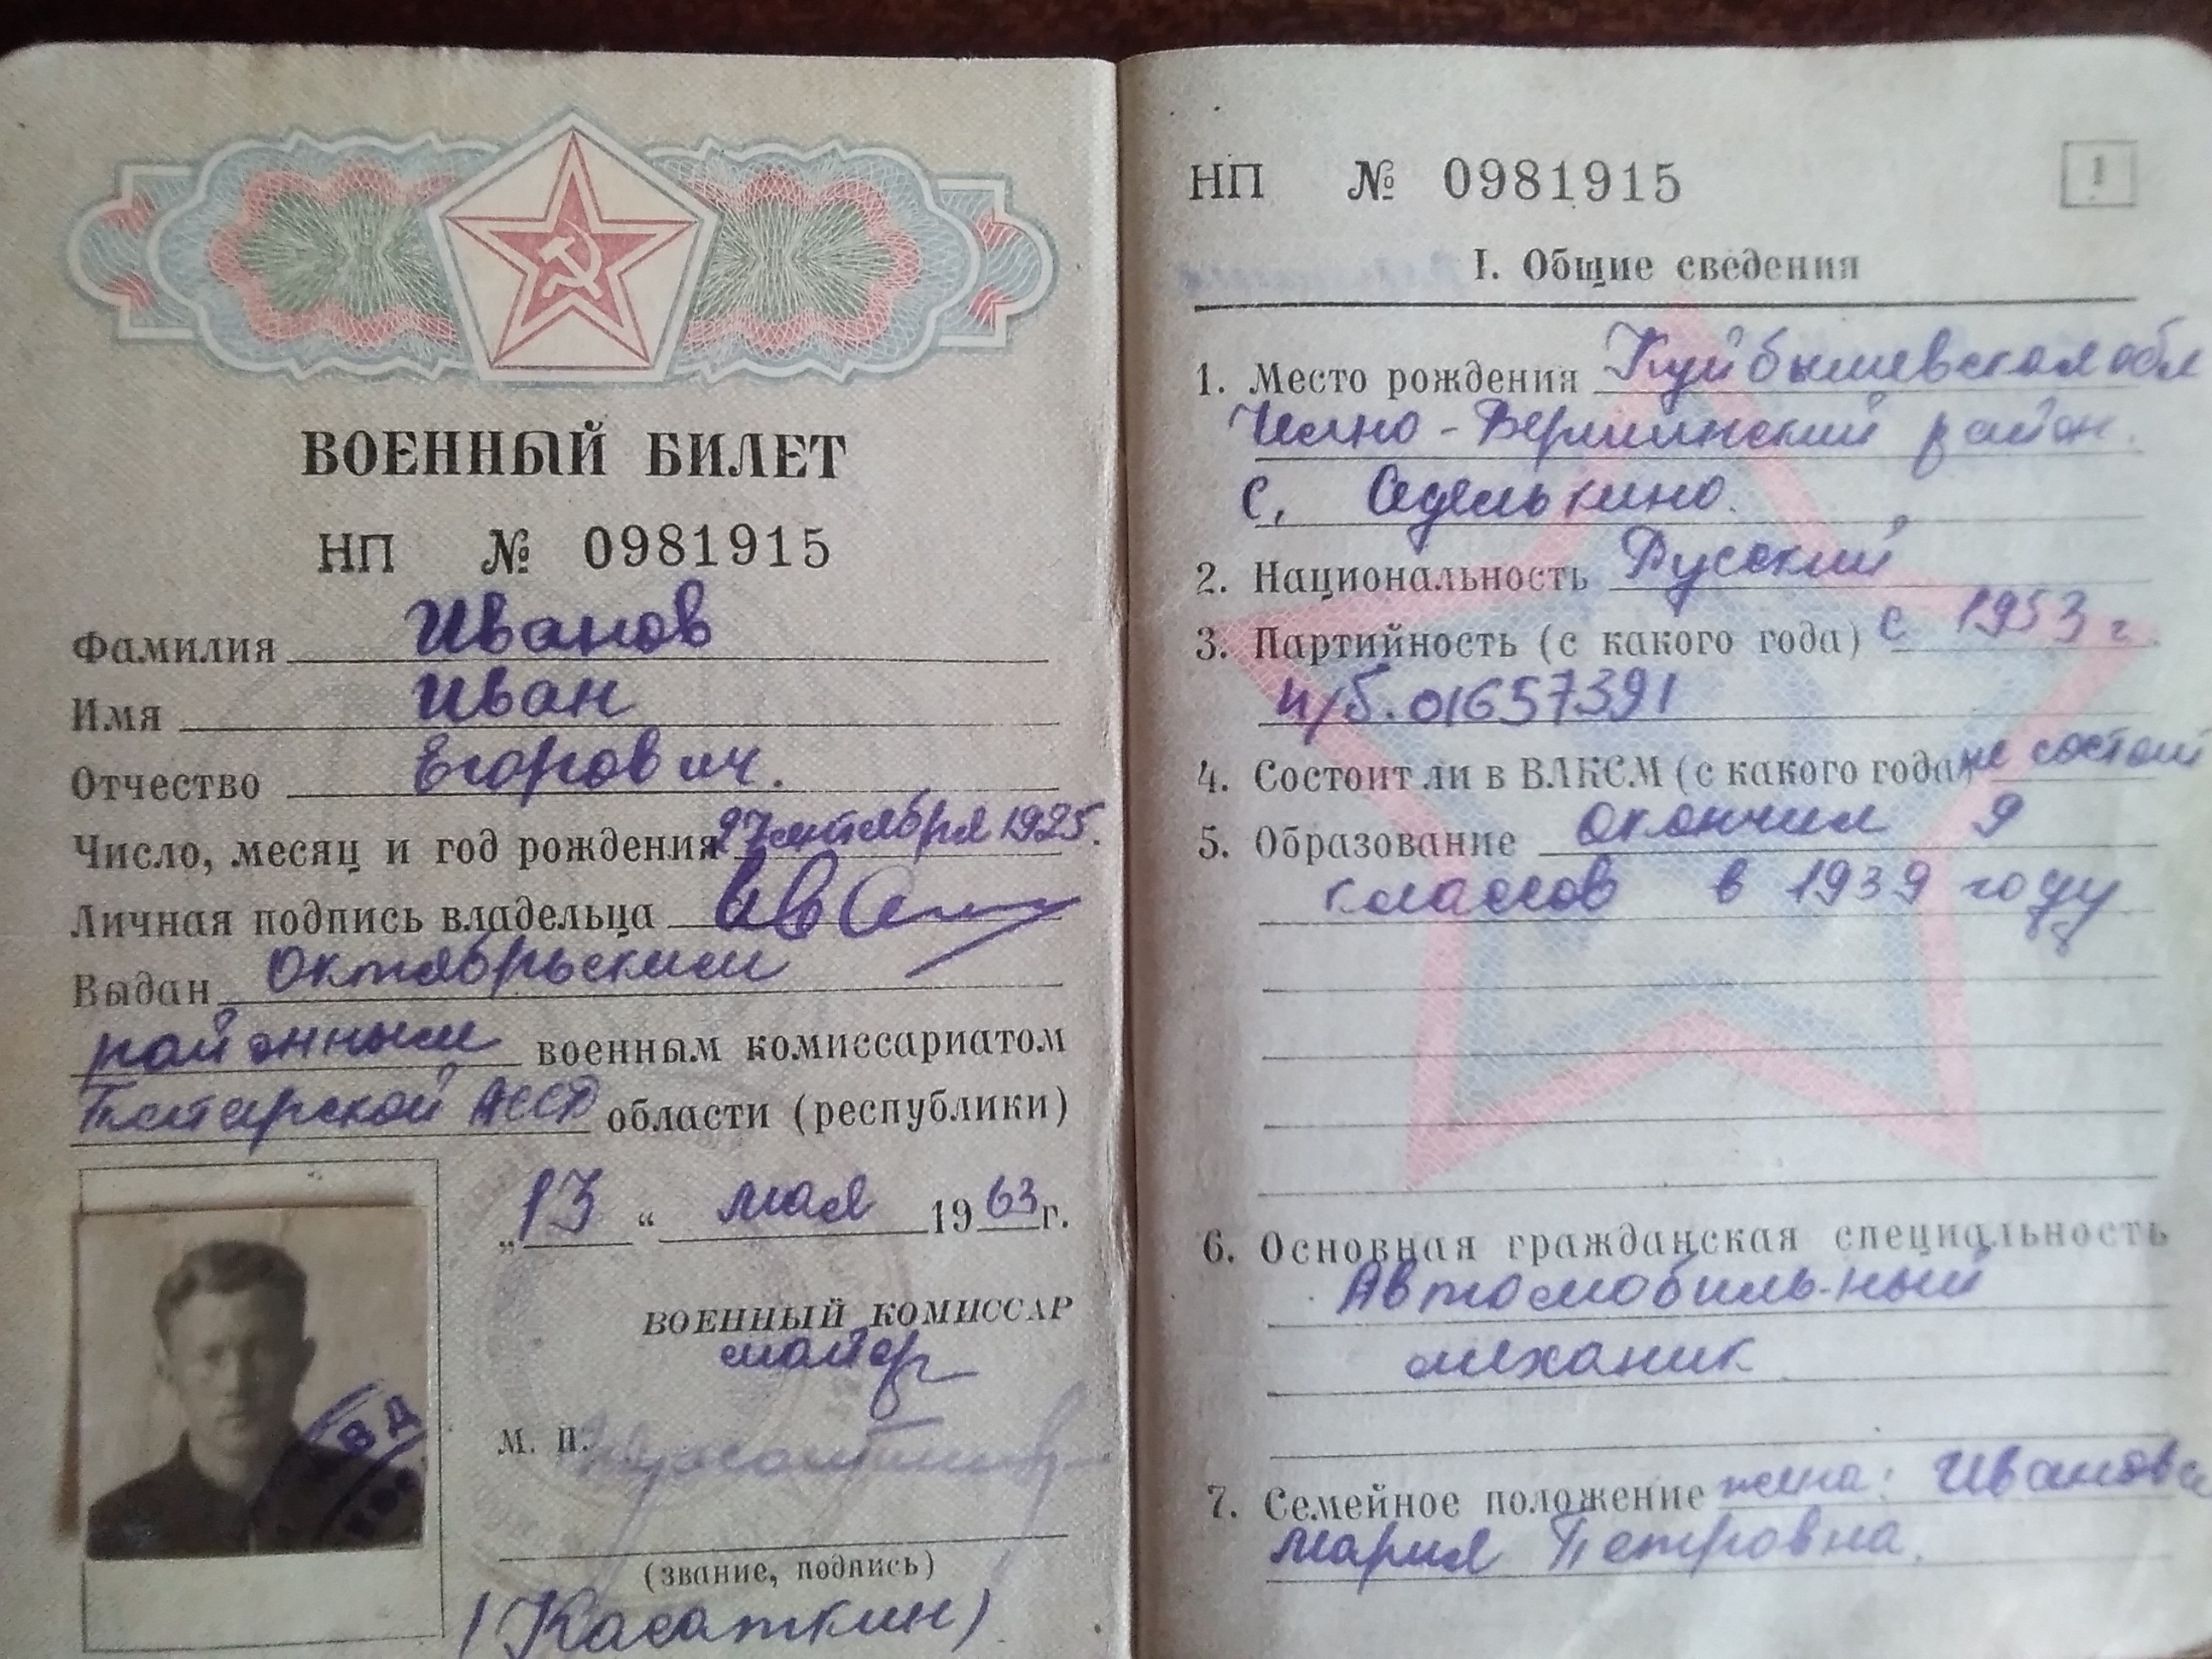 ВОЕННЫЙ БИЛЕТ
НП № 0981915
Фамилия Иванов
Имя Иван
Отчество Егорович.
Число, месяц и год рождения 27 октября 1925.
Личная подпись владельца
Выдан Октябрьским
районным военным комиссариатом
Татарской АССР области (республики)
„13“ мая 1963 г.
ВОЕННЫЙ КОМИССАР
майор
М. П.
(звание, подпись)
(Касаткин)
НП № 0981915
1
I. Общие сведения
1. Место рождения Куйбышевская обл
Челно-Вершинский район.
с. Оделькино.
2. Национальность Русский
3. Партийность (с какого года) с 1953 г.
п/б. 01657391
4. Состоит ли в ВЛКСМ (с какого года) не состоит
5. Образование окончил 9
классов в 1939 году
6. Основная гражданская специальность
Автомобильный
механик
7. Семейное положение жена: Иванова
Мария Петровна.